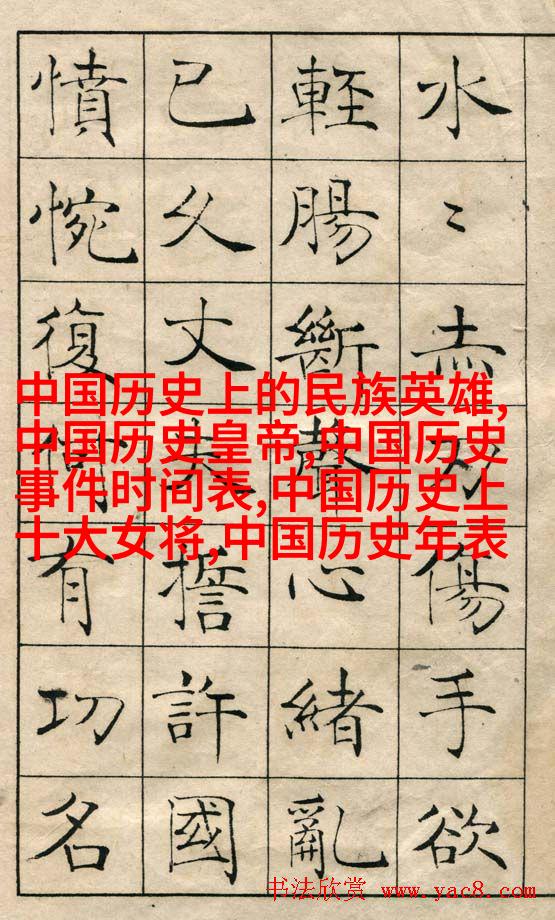 水〻赤刃傷手欲
輕腸斷聲心緒亂
已久丈夫誓許國
憤惋復何有功名
中国历史上的民族英雄,
中国历史皇帝,中国历史
事件时间表,中国历史上
十大女将,中国历史年表
书法欣赏 www.yac8.com